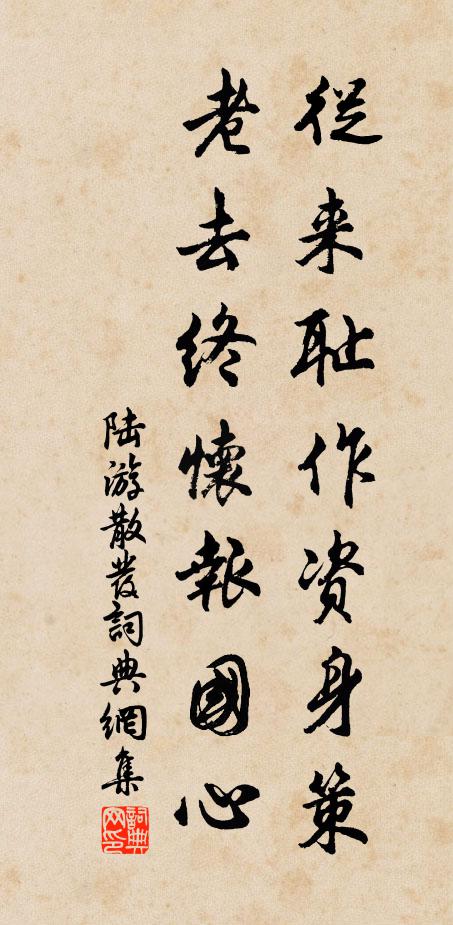 從来耻作资身策
老去終懷報國心
陆游散發詞典網集
詞典网印